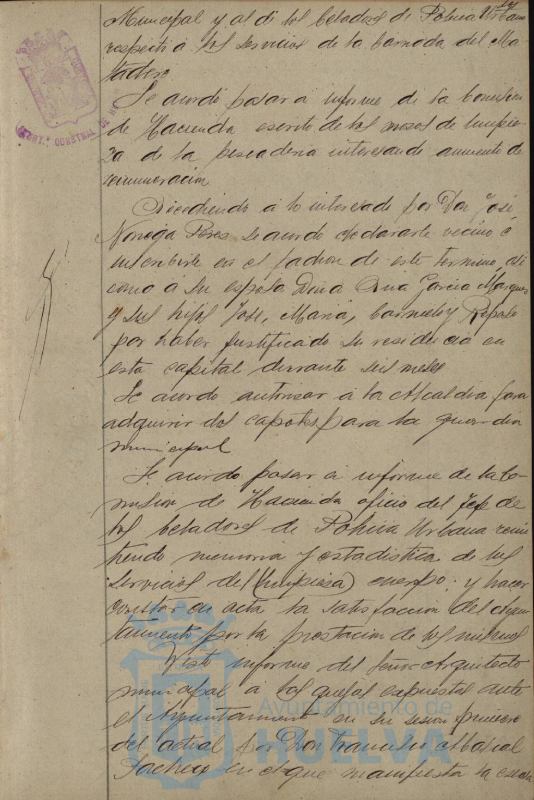 Municipal y al de los Celadores de Policia Urbana
respecto a los servicios de la barriada del Ma-
tadero
Se acordó pasar a informe de la Comisión
de Hacienda escrito de los mozos de limpie-
za de la pescaderia interesando aumento de
remuneración
Accediendo a lo interesado por Don José
Noriega Perez se acordo declararle vecino e
inscribirle en el padron de este termino, asi
como a su esposa Doña Ana Garcia Marquez
y sus hijos José, Maria, Carmelo y Rafael
por haber justificado su residencia en
esta capital durante seis meses
Se acordo autorizar a la Alcaldia para
adquirir dos capotes para la guardia
municipal
Se acordo pasar a informe de la Co-
mision de Hacienda oficio del Jefe de
los Celadores de Policia Urbana remi-
tiendo memoria y estadistica de los
servicios del (limpieza) cuerpo; y hacer
constar en acta la satisfaccion del Ayun-
tamiento por la prestacion de los mismos
Visto informe del señor Arquitecto
municipal a las quejas expuestas ante
el Ayuntamiento en su sesion primero
del actual por Don Francisco
Pacheco en el que manifiesta la
AYUNT.º CONSTNAL DE
Ayuntamiento de
HUELVA